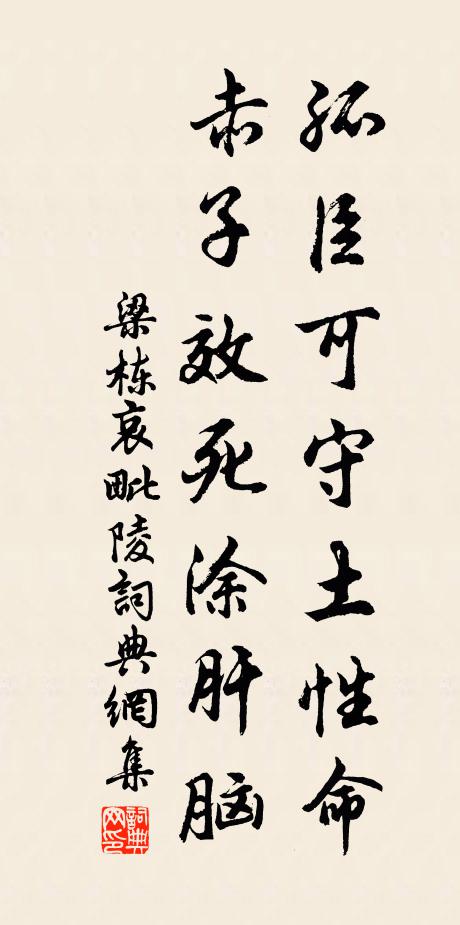 孤臣可守土性命
赤子效死涂肝脑
梁栋哀毗陵詞典網集
詞典网印